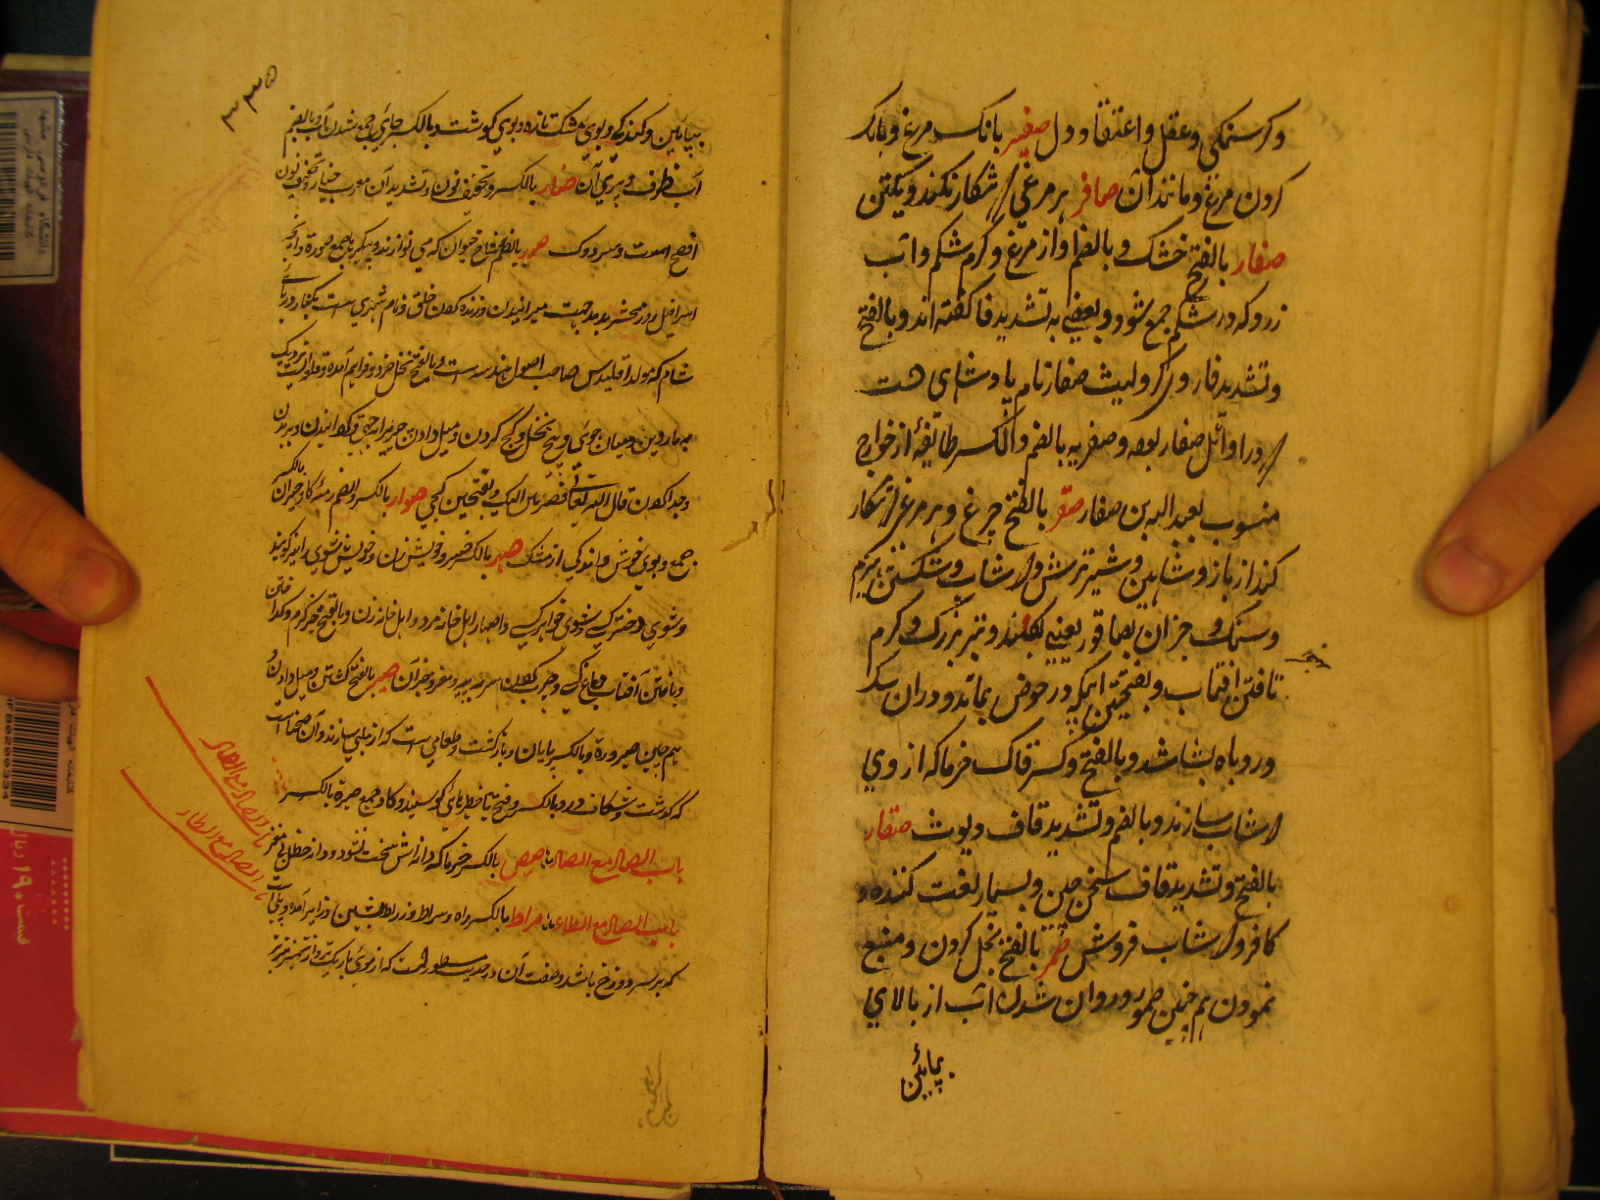 و گرسنگی و عقل و اعتقاد و دل صفیر بانک مرغ و بانگ
کردن مرغ و مانند آن صافر هر مرغی که شکار نکند و یکتن
صفار بالفتح خشک و بالضم آواز مرغ و کرم شکم و آب
زرد که در شکم جمع شود و بعضی به تشدید فا گفته اند و بالفتح
و تشدید فا رویگر و لیث صفار نام پادشاهی است
که در اوائل صفار بوده و صفریه بالضم و الکسر طایفهٔ از خوارج
منسوب بعبد الله بن صفار صقر بالفتح چرغ و هر مرغ که شکار
کند از باز و شاهین و شیر ترش و دوشاب و شکستن هیزم
و سنگ و جز آن بصاقور یعنی کلند و تبر بزرگ و گرم
تافتن آفتاب و بفتحتین آبیکه در حوض بماند و در آن سگ
و روباه بشاشد و بالفتح و کسر قاف خرما که از وی
دوشاب سازند و بالضم و تشدید قاف دیوث صقار
بالفتح و تشدید قاف سخن چین و بسیار لعنت کننده و
کافر و دوشاب فروش صمر بالفتح بخل کردن و منع
نمودن هم چنین صمور و روان شدن آب از بالای
بپائین
۳۳۵
بپایین و گندگی و بوی مشک تازه و بوی گوشت و بالکسر جای جمع شدن آب و بالضم
لب ظرف و پری آن صنار بالکسر و تخفیف نون و تشدید آن معرب چنار و تخفیف نون
افصح است و سر دوک صور بالضم شاخ حیوان که می نوازند و پیکرها جمع صورة و آنچه
اسرافیل روز محشر بدمد جهت میرانیدن و زنده کردن خلق و نام شهری است بکنار دریای
شام که مولد اقلیدس صاحب اصول هندسه است و بالفتح نخل خرد و فراهم آمده و قلعه ایست نزدیک
به ماردین و میان جوی و بیخ نخل و کج کردن و میل دادن چیزی را بجهتی و گردانیدن و بریدن
و جدا کردن قال الله تعالی فصرهن الیک و بفتحتین کجی صوار بالکسر و الضم رمهٔ گاو جیران
جمع و بوی خوش و اندکی از مشک صهر بالکسر خسر و خویش زن و خویش شوی را نیز گویند
و شوی دختر کسی و شوی خواهر کسی و اصهار اهل خانه مرد و اهل خانه زن و بالفتح چیز گرم و گداختن
و تافتن آفتاب دماغ کسی و چرب کردن سر به پیه و مغز و جز آن صیر بالفتح گشتن و میل دادن و
هم چنین صیرورة و بالکسر پایان و بازگشت و طعامی است که از ماهی سازند و آن صحناة است
که گذشت و شکاف در و بالکسر و فتح یا حظیرهای گوسپند و گاو جمع صیرة بالکسر
باب الصاد مع الصاد صیص بالکسر خرما که دانه اش سخت نشود و دانه حنظل بی مغز
باب الصاد مع الطاء صراط بالکسر راه و سراط و زراط بسین و زا نیز آمده و پلی است
که بر سر دوزخ باشد و صفت آن در حدیث مسطور است که از موی باریکتر و از شمشیر تیزتر
باب الصاد مع الصاد
باب الصاد مع الطاء